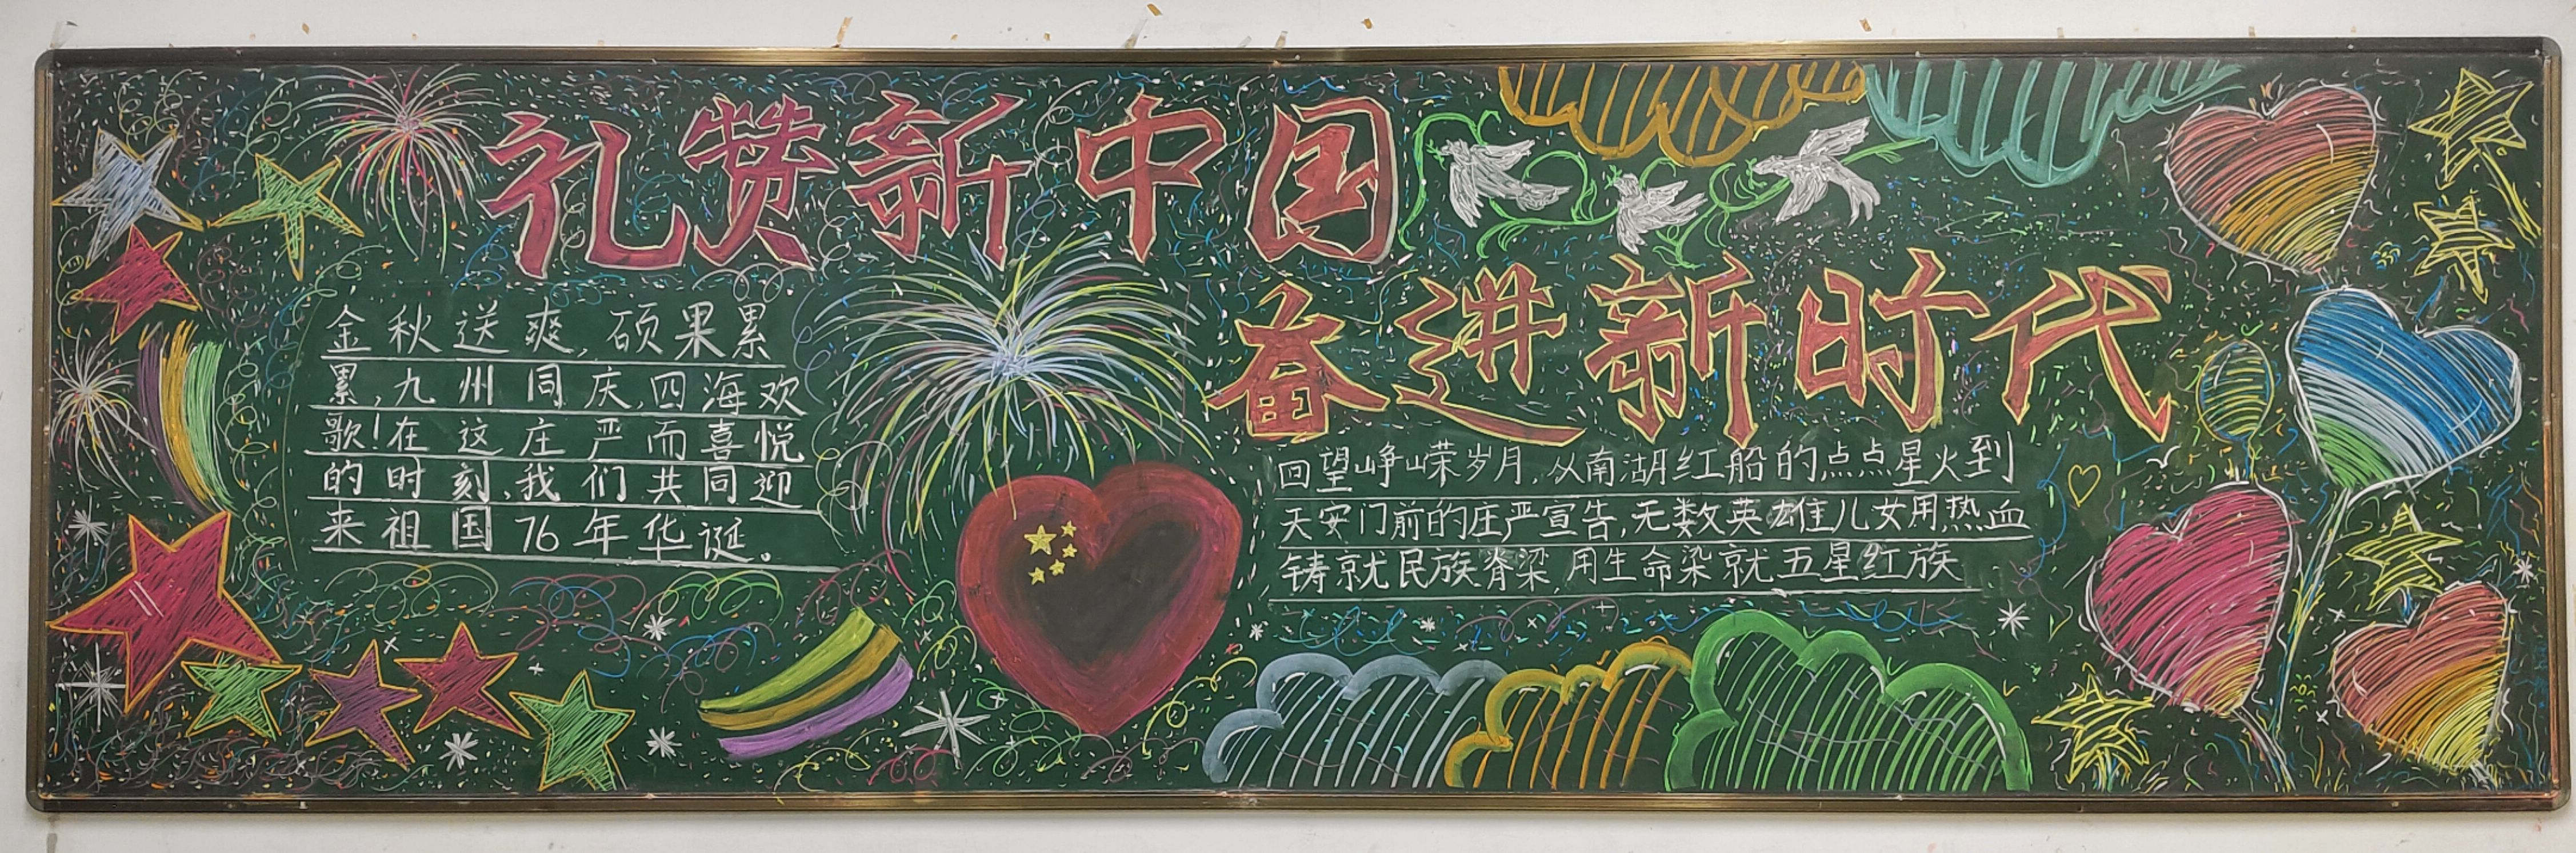 礼赞新中国
奋进新时代
金秋送爽,硕果累
累,九州同庆,四海欢
歌!在这庄严而喜悦
的时刻,我们共同迎
来祖国76年华诞。
回望峥嵘岁月,从南湖红船的点点星火到
天安门前的庄严宣告,无数英雄儿女用热血
铸就民族脊梁,用生命染就五星红族